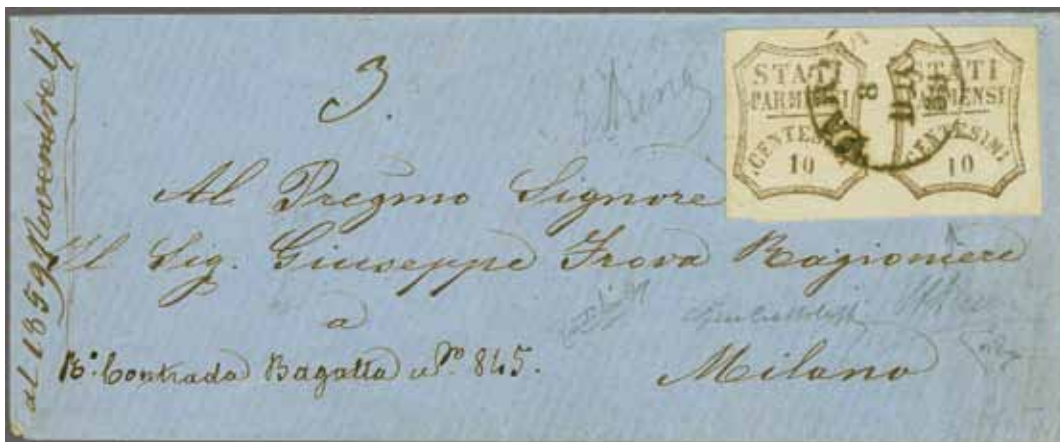 al 1859 Novembre 17
3.
STATI
PARMENSI
CENTESIMI
10
STATI
PARMENSI
CENTESIMI
10
8
Al Pregmo Signore
Il Sig. Giuseppe Trova Ragioniere
a
Contrada Bagatta No. 845.
Milano